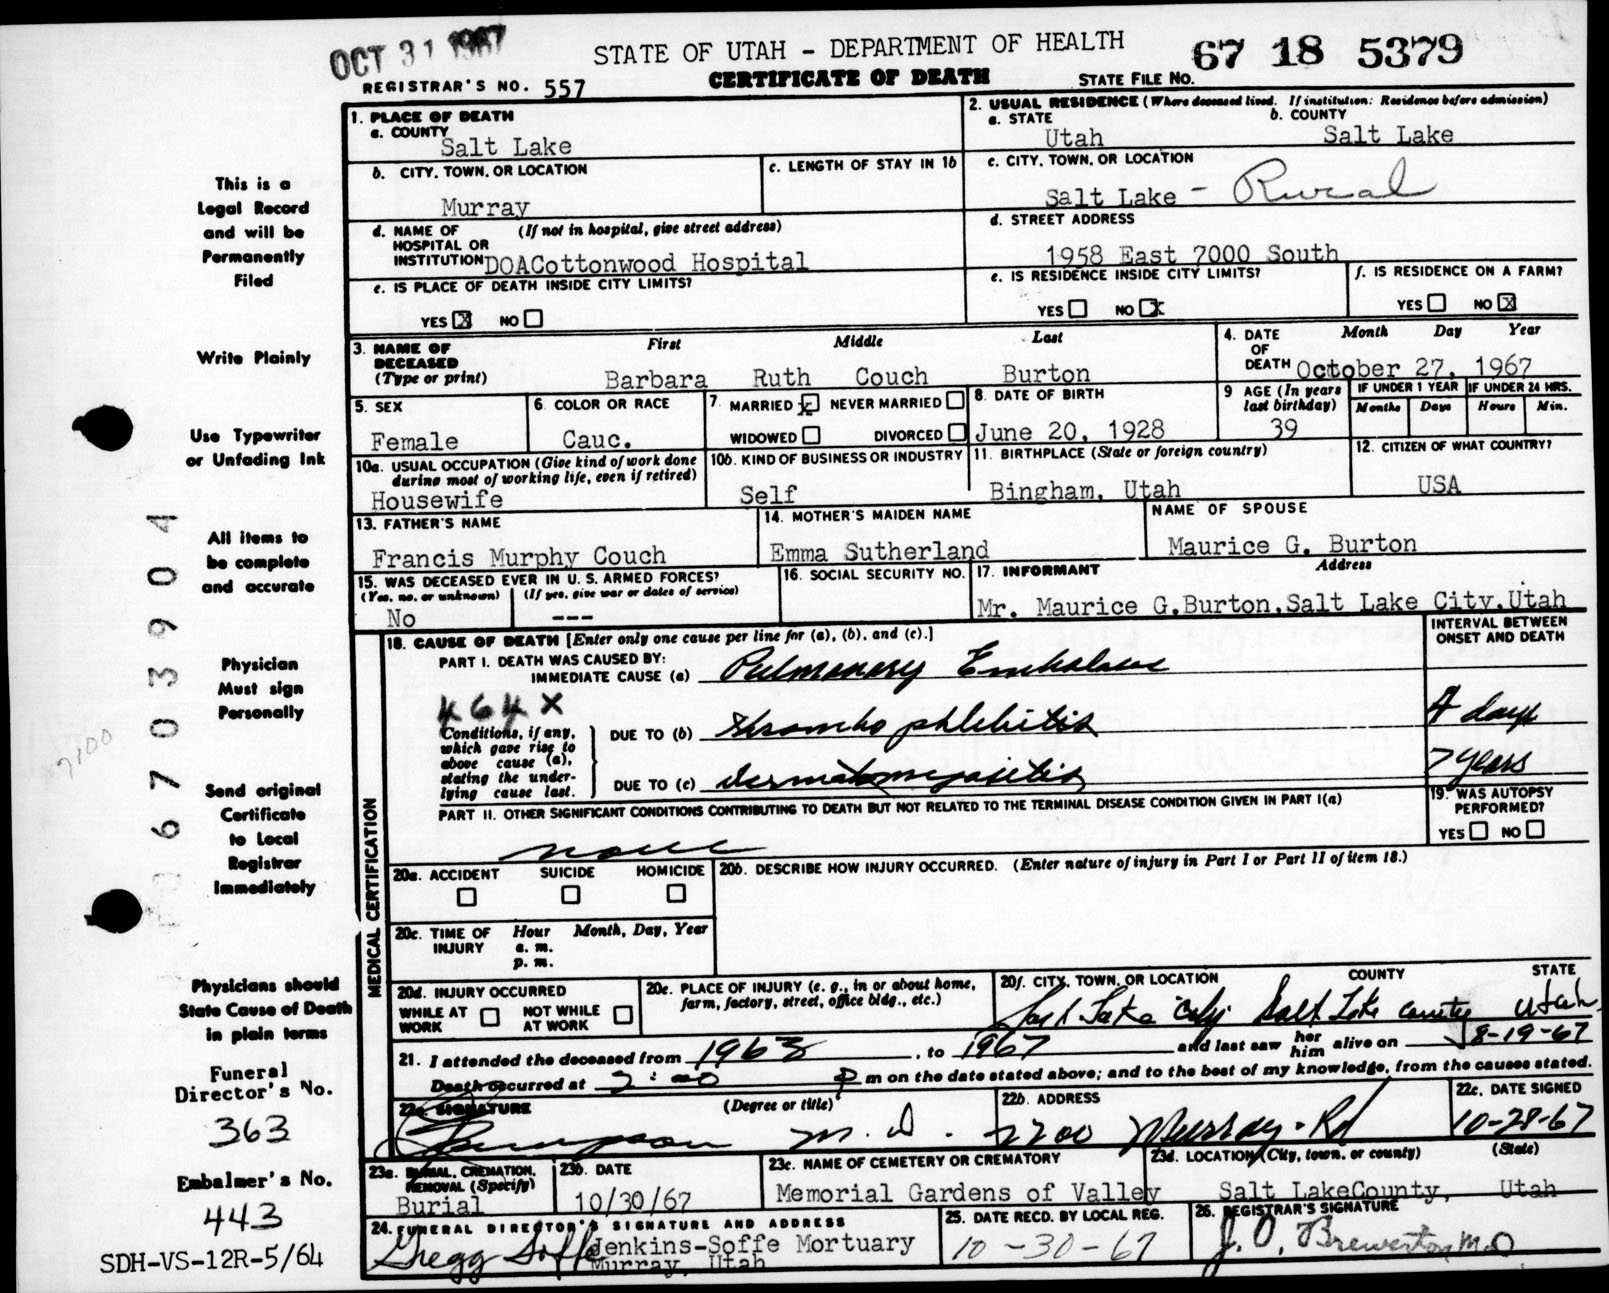 OCT 31 1967
STATE OF UTAH - DEPARTMENT OF HEALTH
67 18 5379
REGISTRAR'S NO. 557
CERTIFICATE OF DEATH
STATE FILE NO.
1. PLACE OF DEATH
a. COUNTY
Salt Lake
2. USUAL RESIDENCE (Where deceased lived. If institution: Residence before admission)
a. STATE
b. COUNTY
Utah
Salt Lake
b. CITY, TOWN, OR LOCATION
Murray
c. LENGTH OF STAY IN 1b
c. CITY, TOWN, OR LOCATION
Salt Lake - Rural
d. NAME OF HOSPITAL OR INSTITUTION (If not in hospital, give street address)
DOACottonwood Hospital
d. STREET ADDRESS
1958 East 7000 South
e. IS PLACE OF DEATH INSIDE CITY LIMITS?
YES X NO
e. IS RESIDENCE INSIDE CITY LIMITS?
YES NO X
f. IS RESIDENCE ON A FARM?
YES NO X
3. NAME OF DECEASED (Type or print)
First Middle Last
Barbara Ruth Couch Burton
4. DATE OF DEATH
Month Day Year
October 27, 1967
5. SEX
Female
6. COLOR OR RACE
Cauc.
7. MARRIED X NEVER MARRIED
WIDOWED DIVORCED
8. DATE OF BIRTH
June 20, 1928
9 AGE (In years last birthday)
39
IF UNDER 1 YEAR
Months Days
IF UNDER 24 HRS.
Hours Min.
10a. USUAL OCCUPATION (Give kind of work done during most of working life, even if retired)
Housewife
10b. KIND OF BUSINESS OR INDUSTRY
Self
11. BIRTHPLACE (State or foreign country)
Bingham, Utah
12. CITIZEN OF WHAT COUNTRY?
USA
13. FATHER'S NAME
Francis Murphy Couch
14. MOTHER'S MAIDEN NAME
Emma Sutherland
NAME OF SPOUSE
Maurice G. Burton
15. WAS DECEASED EVER IN U. S. ARMED FORCES?
(Yes, no, or unknown) (If yes, give war or dates of service)
No ---
16. SOCIAL SECURITY NO.
17. INFORMANT Address
Mr. Maurice G.Burton,Salt Lake City,Utah
MEDICAL CERTIFICATION
18. CAUSE OF DEATH [Enter only one cause per line for (a), (b), and (c).]
INTERVAL BETWEEN ONSET AND DEATH
PART I. DEATH WAS CAUSED BY:
IMMEDIATE CAUSE (a) Pulmonary Embolous
464X
Conditions, if any, which gave rise to above cause (a), stating the underlying cause last.
DUE TO (b) thrombophlebitis
4 days
DUE TO (c) Dermatomyositis
7 years
PART II. OTHER SIGNIFICANT CONDITIONS CONTRIBUTING TO DEATH BUT NOT RELATED TO THE TERMINAL DISEASE CONDITION GIVEN IN PART I(a)
none
19. WAS AUTOPSY PERFORMED?
YES NO
20a. ACCIDENT SUICIDE HOMICIDE
20b. DESCRIBE HOW INJURY OCCURRED. (Enter nature of injury in Part I or Part II of item 18.)
20c. TIME OF INJURY
Hour Month, Day, Year
a. m.
p. m.
20d. INJURY OCCURRED
WHILE AT WORK NOT WHILE AT WORK
20e. PLACE OF INJURY (e. g., in or about home, farm, factory, street, office bldg., etc.)
20f. CITY, TOWN, OR LOCATION COUNTY STATE
Salt Lake City Salt Lake County Utah
21. I attended the deceased from 1963, to 1967 and last saw her him alive on 8-19-67
Death occurred at 2:00 P m on the date stated above; and to the best of my knowledge, from the causes stated.
22a SIGNATURE (Degree or title)
M. D.
22b. ADDRESS
Murray Rd
22c. DATE SIGNED
10-28-67
23a. BURIAL, CREMATION, REMOVAL (Specify)
Burial
23b. DATE
10/30/67
23c. NAME OF CEMETERY OR CREMATORY
Memorial Gardens of Valley
23d. LOCATION (City, town, or county) (State)
Salt LakeCounty, Utah
24. FUNERAL DIRECTOR'S SIGNATURE AND ADDRESS
Gregg Soffe Jenkins-Soffe Mortuary
Murray, Utah
25. DATE RECD. BY LOCAL REG.
10-30-67
26. REGISTRAR'S SIGNATURE
J. O. Brewerton M.D
This is a
Legal Record
and will be
Permanently
Filed
Write Plainly
Use Typewriter
or Unfading Ink
All items to
be complete
and accurate
Physician
Must sign
Personally
Send original
Certificate
to Local
Registrar
Immediately
Physicians should
State Cause of Death
in plain terms
Funeral
Director's No.
363
Embalmer's No.
443
SDH-VS-12R-5/64
6703904
7100